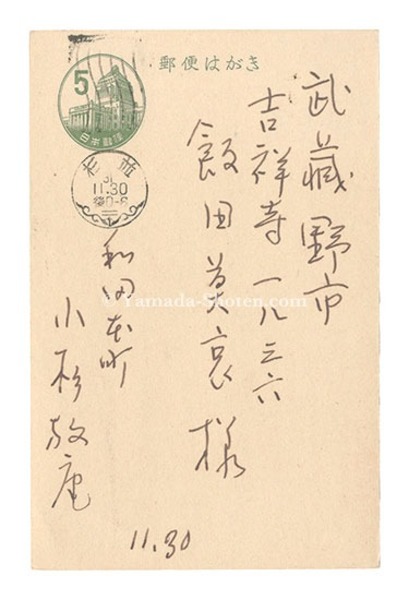 郵便はがき
5
日本郵便
杉並
11.30
武藏野市
吉祥寺一八三六
飯田莫哀様
和田本町
小杉放庵
11.30
© Yamada-Shoten.com